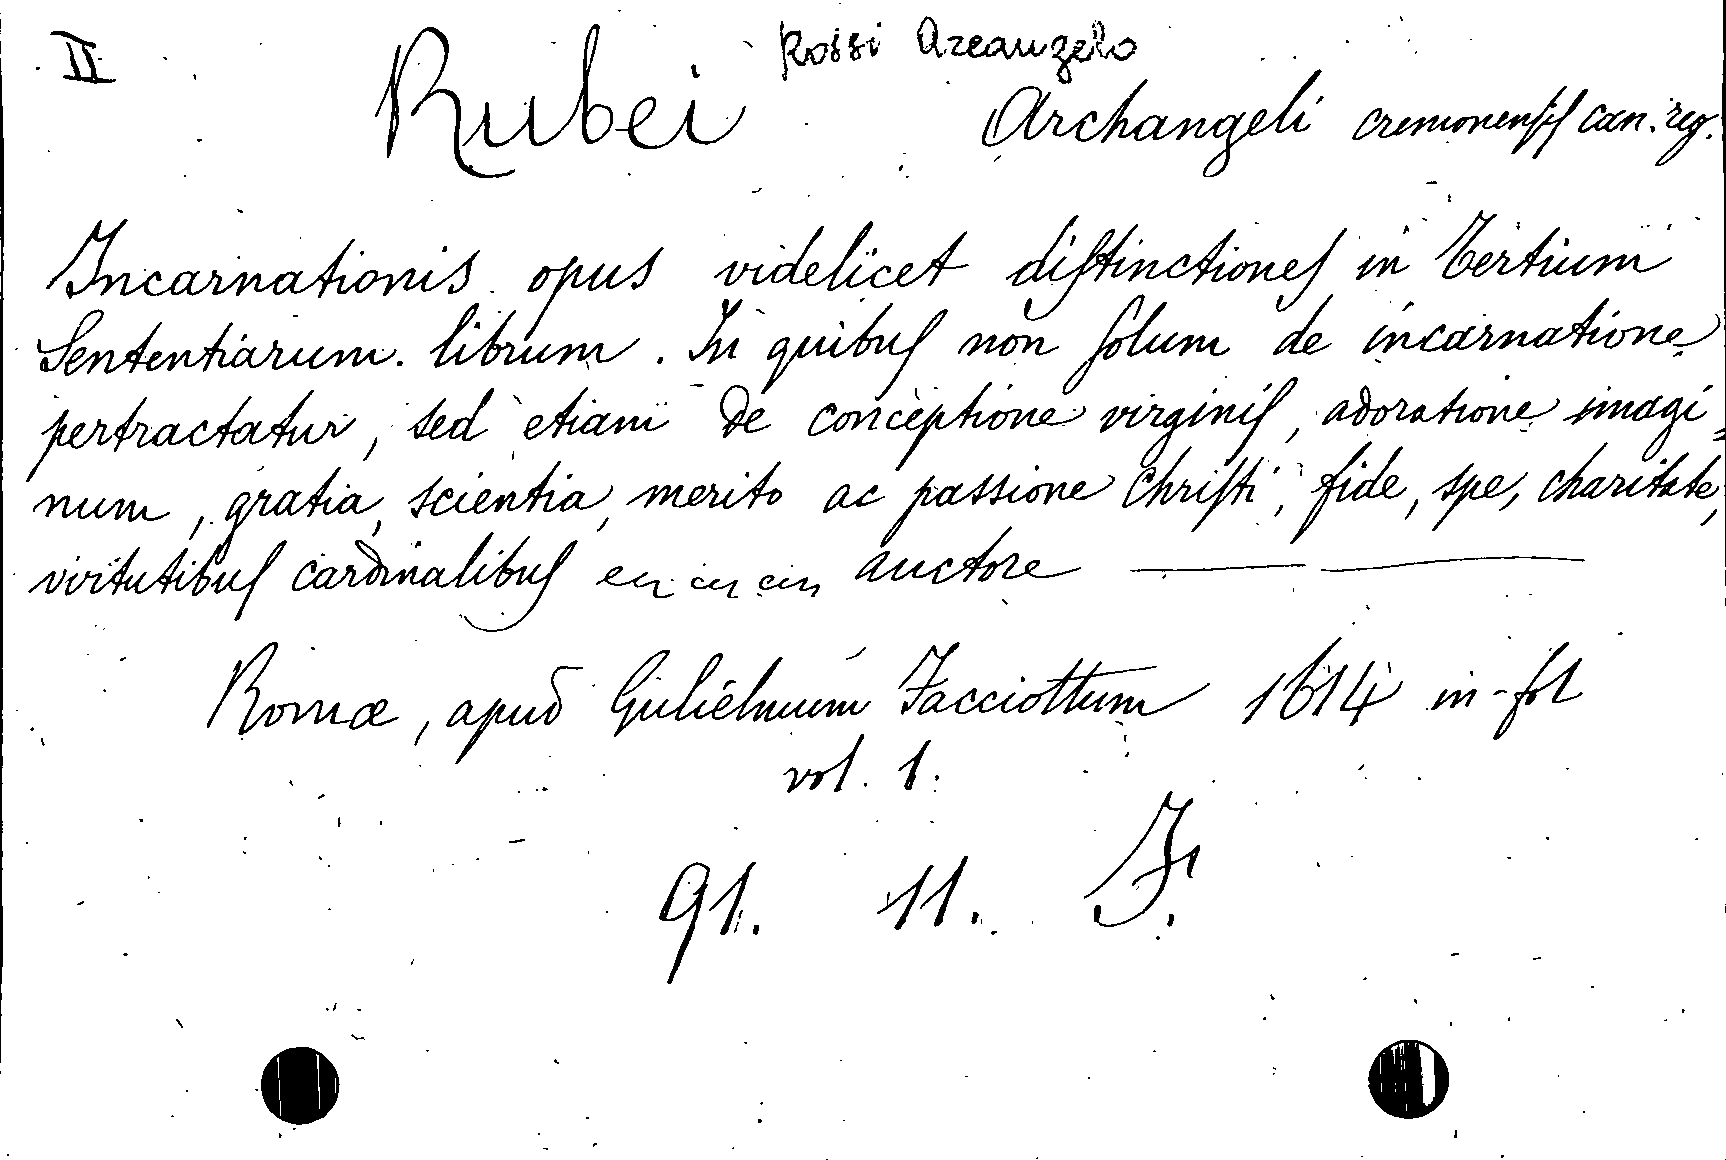 II
Rossi Arcangelo
Rubei Archangeli cremonensis can. reg.
Incarnationis opus videlicet diſtinctiones in tertium
Sententiarum. librum. In quibus non ſolum de incarnatione
pertractatur, sed etiam de conceptione virginis, adoratione imagi=
num, gratia, scientia, merito ac passione Chriſti, fide, spe, charitate,
virtutibus cardinalibus auctore ——— ———
Romæ, apud Gulielmum Facciottum 1614 in-fol
vol. 1.
91. 11. F.